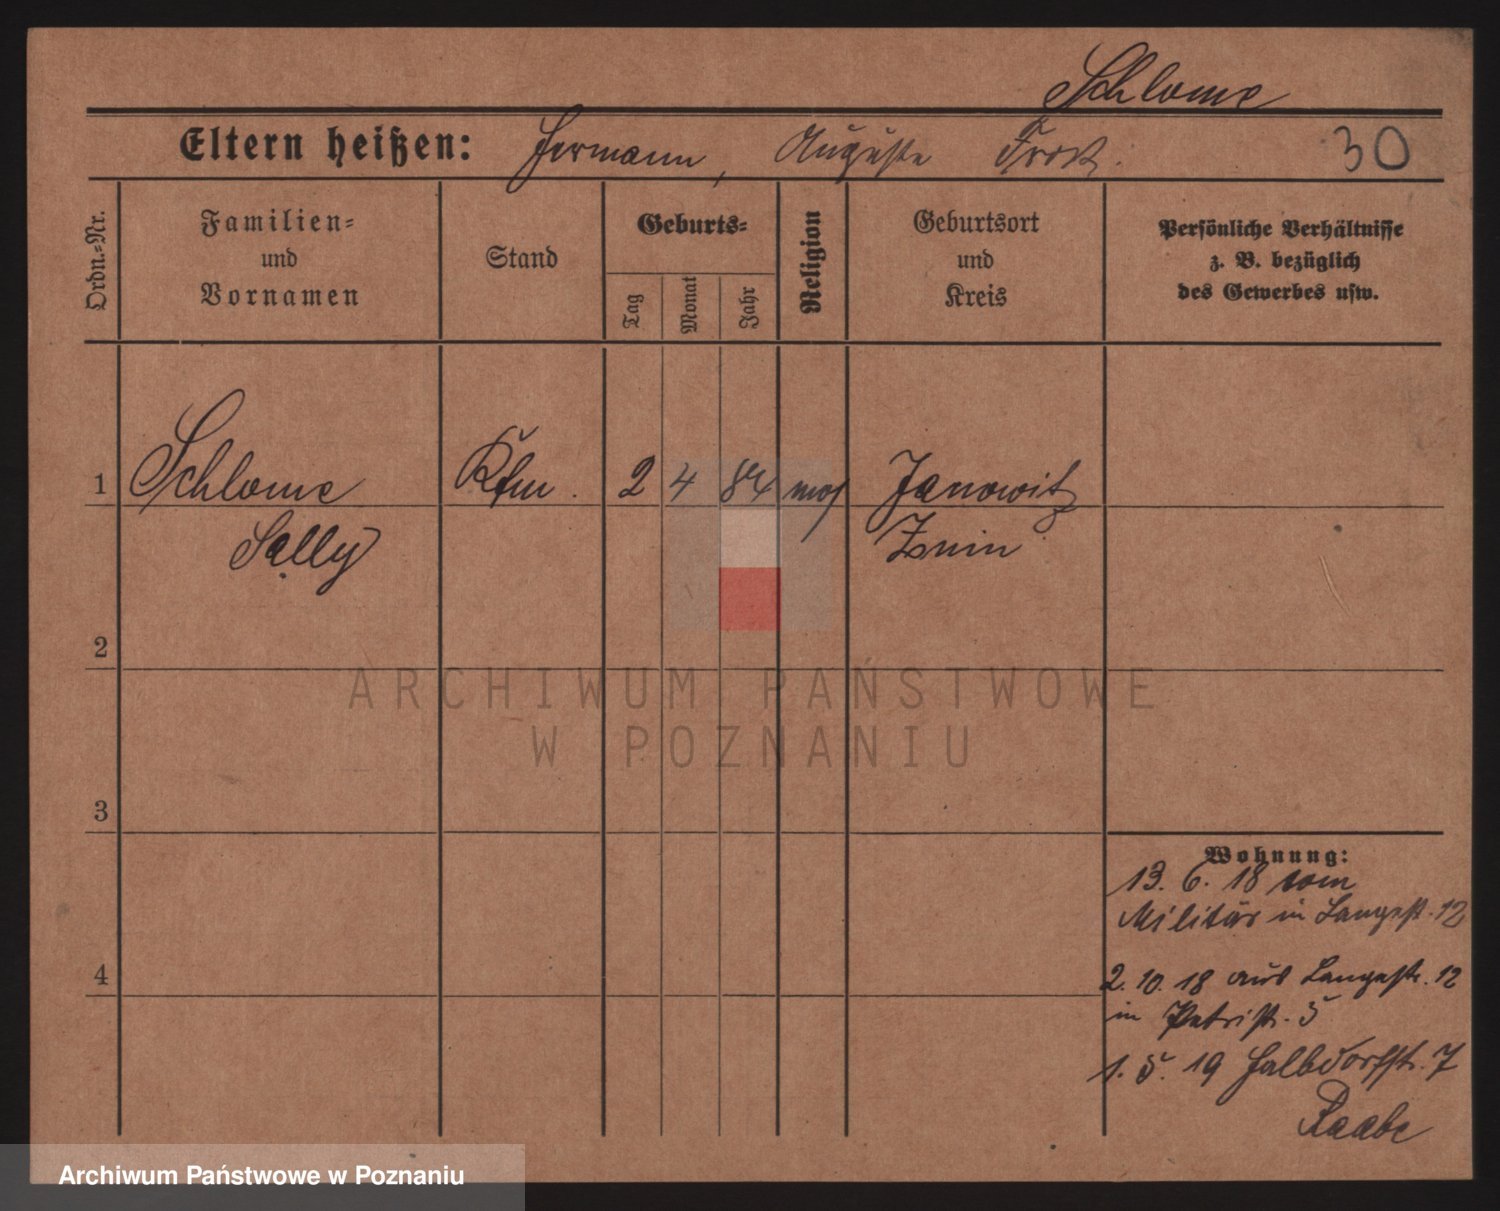 Schlome
Eltern heißen: Hermann, Auguste 30
Ordn.-Nr.
Familien-
und
Vornamen
Stand
Geburts-
Tag
Monat
Jahr
Religion
Geburtsort
und
Kreis
Persönliche Verhältnisse
z. B. bezüglich
des Gewerbes usw.
1 Schlome Kfm. 2 4 84 mos Janowitz
Sally Znin
2
ARCHIWUM PAŃSTWOWE
W POZNANIU
3
Wohnung:
13. 6. 18 vom
Militär in Langestr. 12
4
2. 10. 18 aus Langestr. 12
in Petristr. 5
1. 5. 19 Halbdorfstr. 7
Raabe
Archiwum Państwowe w Poznaniu